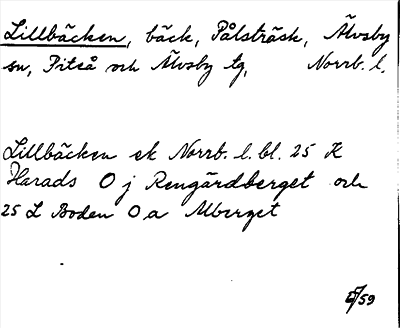 Lillbäcken, bäck, Pålsträsk, Älvsby
sn, Piteå och Älvsby tg, Norrb. l.
Lillbäcken ek Norrb. l. bl. 25 K
Harads O j Rengårdberget och
25 L Boden O a Alberget
/59